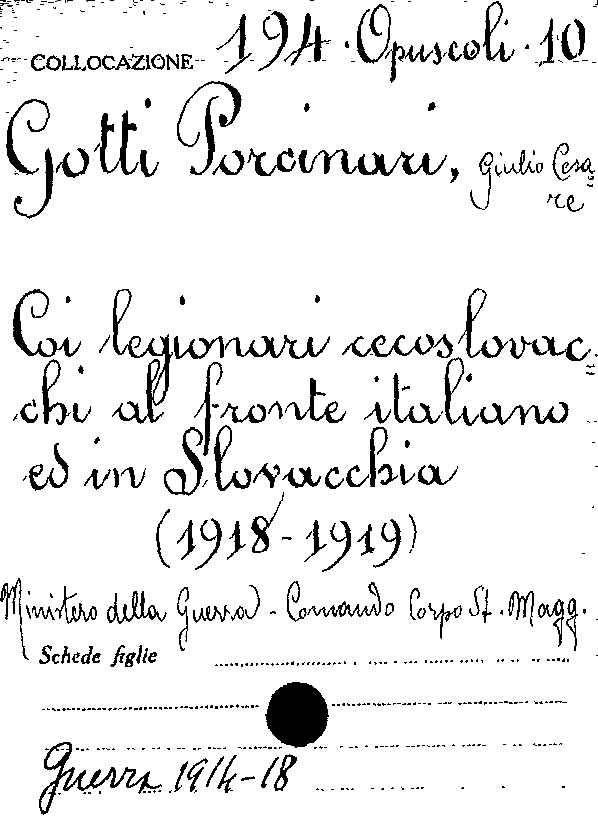 COLLOCAZIONE 194.Opuscoli.10
Gotti Porcinari, Giulio Cesa=
re
Coi legionari cecoslovac=
chi al fronte italiano
ed in Slovacchia
(1918-1919)
Ministero della Guerra - Comando Corpo St. Magg.
Schede figlie
Guerra 1914-18